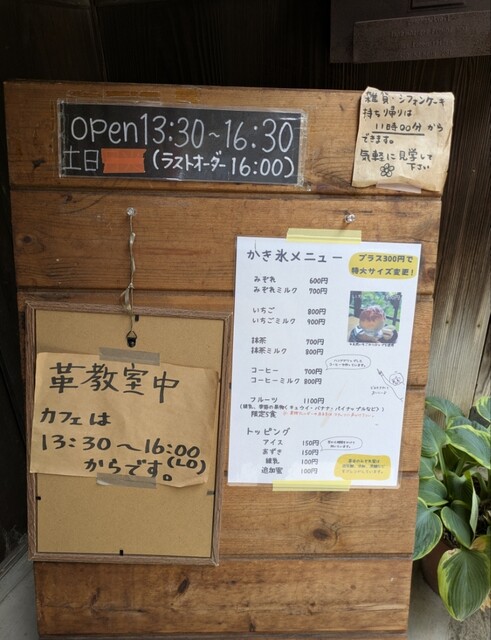 open13:30～16:30
土日
(ラストオーダー16:00)
雑貨・シフォンケーキ
持ち帰りは
11時00分から
できます。
気軽に見学して
下さい
かき氷メニュー
プラス300円で
特大サイズ変更！
みぞれ 600円
みぞれミルク 700円
いちご 800円
いちごミルク 900円
抹茶 700円
抹茶ミルク 800円
コーヒー 700円
コーヒーミルク 800円
フルーツ 1100円
限定5食
トッピング
アイス 150円
あずき 150円
練乳 100円
追加蜜 100円
革教室中
カフェは
13:30～16:00
(LO)
からです。